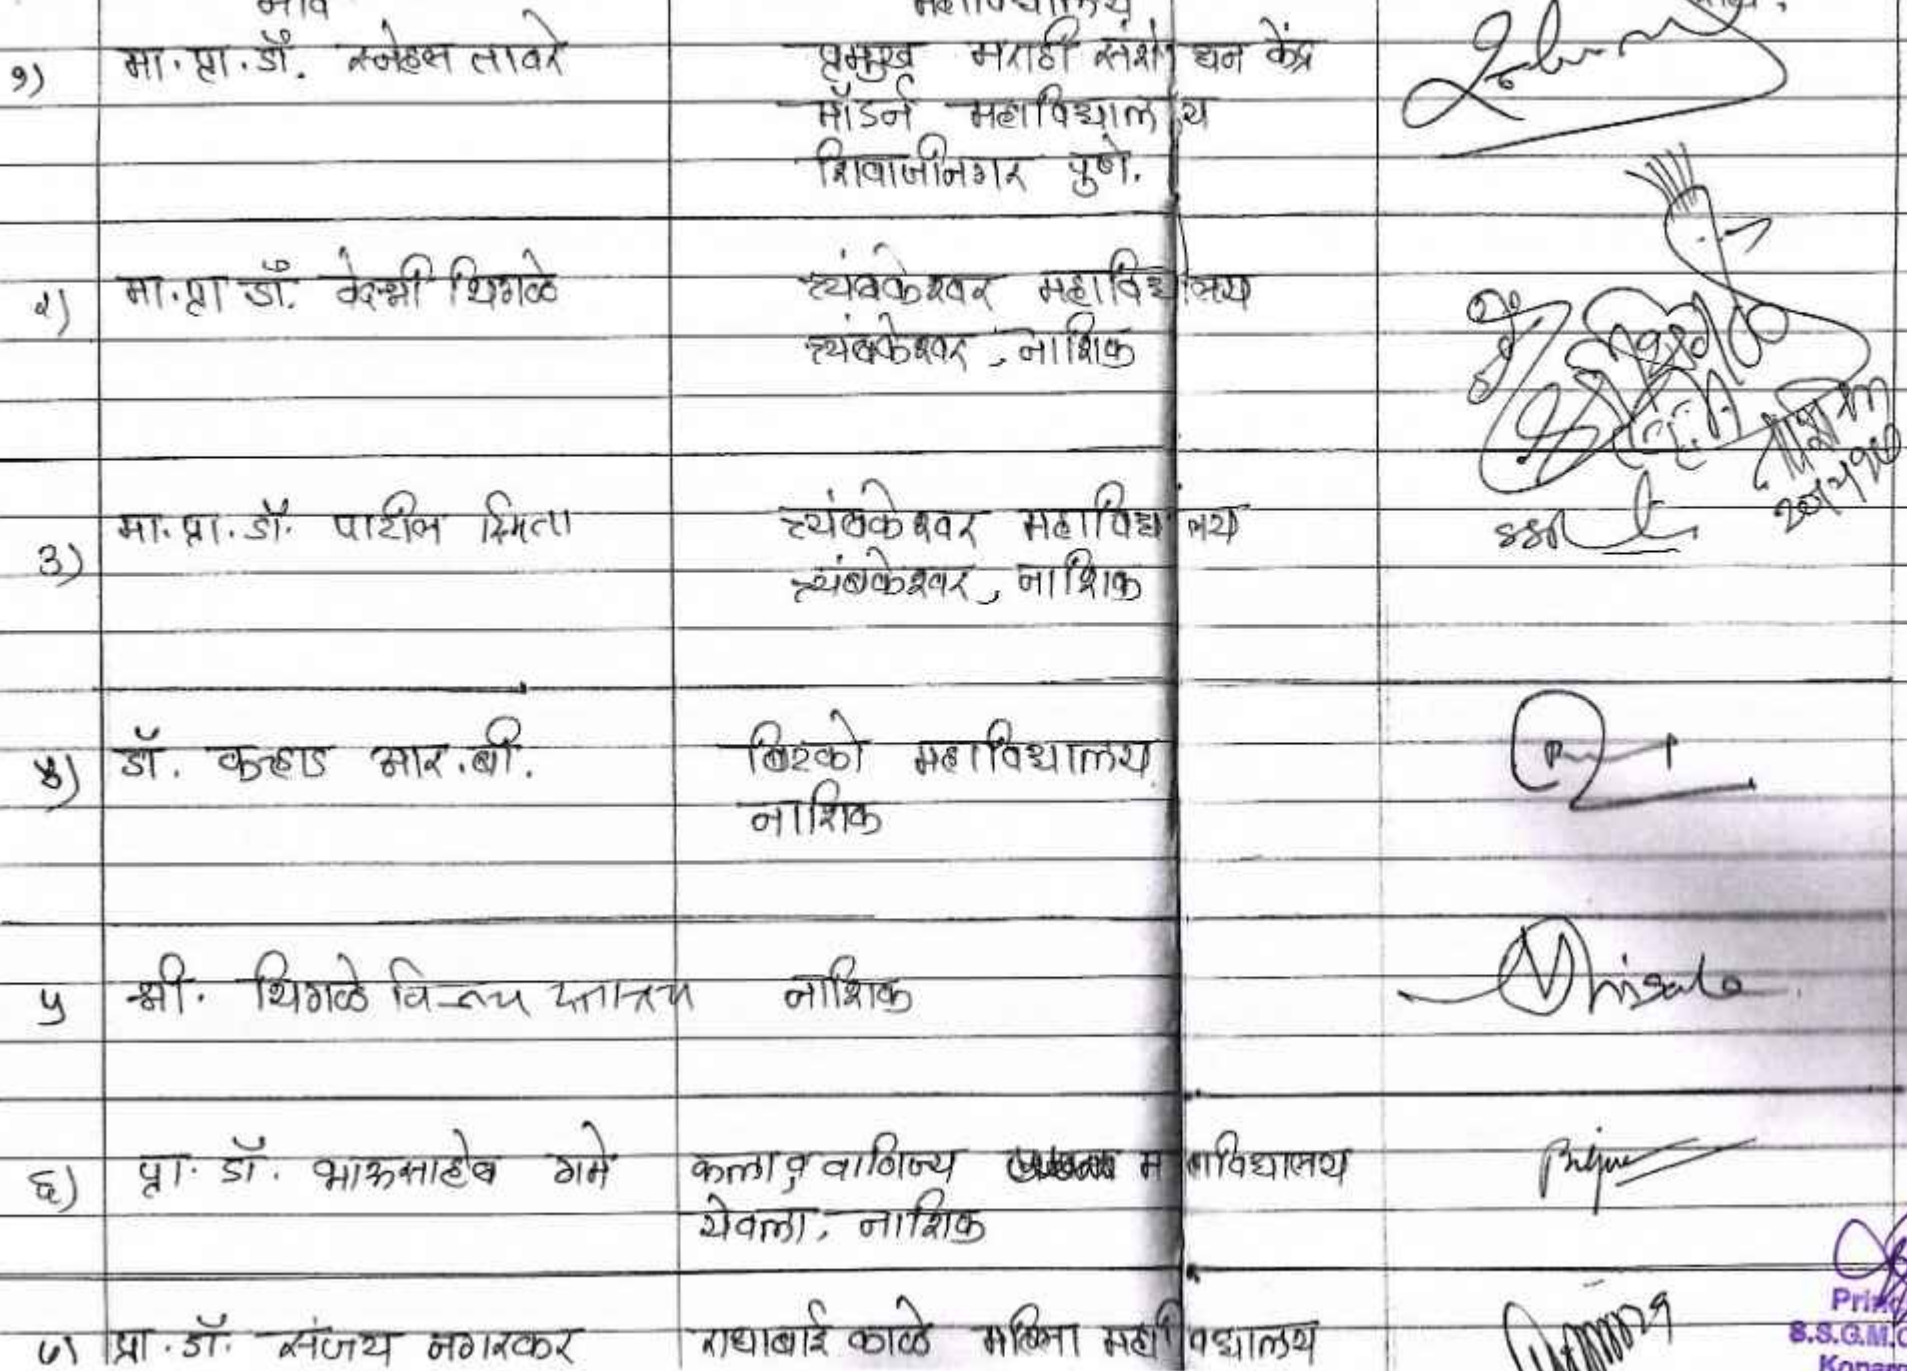 नाव महाविद्यालय
१) मा. प्रा. डॉ. स्नेहल तावरे प्रमुख मराठी संशोधन केंद्र
मॉडर्न महाविद्यालय
शिवाजीनगर पुणे.
२) मा. प्रा डॉ. वेदश्री थिगळे त्र्यंबकेश्वर महाविद्यालय
त्र्यंबकेश्वर, नाशिक
३) मा. प्रा. डॉ. पाटील स्मिता त्र्यंबकेश्वर महाविद्यालय
त्र्यंबकेश्वर, नाशिक
४) डॉ. कऱ्हाड आर. बी. बिटको महाविद्यालय
नाशिक
५ श्री. थिगळे नाशिक
६) प्रा. डॉ. भाऊसाहेब गमे कला व वाणिज्य महाविद्यालय
येवला, नाशिक
७) प्रा. डॉ. संजय नगरकर राधाबाई काळे महिला महाविद्यालय
S.S.G.M.